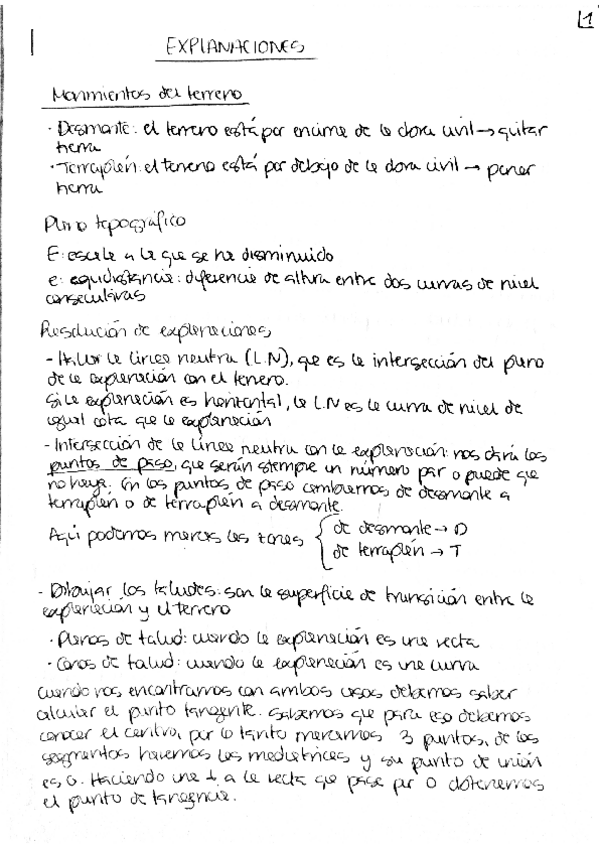 1
EXPLANACIONES
Movimientos del terreno
· Desmonte: el terreno está por encima de la obra civil → quitar
tierra
· Terraplén: el terreno está por debajo de la obra civil → poner
tierra
Plano topográfico
E: escala a la que se ha disminuido
e: equidistancia: diferencia de altura entre dos curvas de nivel
consecutivas
Resolución de explanaciones
- Hallar la línea neutra (L.N), que es la intersección del plano
de la explanación con el terreno.
Si la explanación es horizontal, la L.N es la curva de nivel de
igual cota que la explanación
- Intersección de la línea neutra con la explanación: nos dará los
puntos de paso, que serán siempre un número par o puede que
no haya. En los puntos de paso cambiaremos de desmonte a
terraplén o de terraplén a desmonte.
Aquí podemos marcar las zonas { de desmonte → D
de terraplén → T
- Dibujar los taludes: son la superficie de transición entre la
explanación y el terreno
· Planos de talud: cuando la explanación es una recta
· Conos de talud: cuando la explanación es una curva
Cuando nos encontramos con ambos casos debemos saber
calcular el punto tangente. Sabemos que para eso debemos
conocer el centro, por lo tanto marcamos 3 puntos, de los
segmentos hacemos las mediatrices y su punto de unión
es O. Haciendo una ⊥ a la recta que pase por O obtenemos
el punto de tangencia.